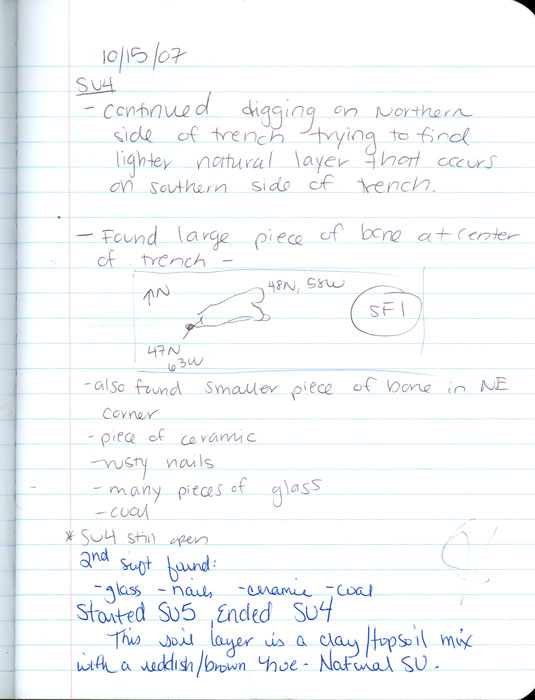 10/15/07
SU4
- continued digging on Northern
side of trench trying to find
lighter natural layer that occurs
on southern side of trench.
- Found large piece of bone at center
of trench -
↑N
48N, 58W
SF1
47N
63W
- also found smaller piece of bone in NE
corner
- piece of ceramic
- rusty nails
- many pieces of glass
- coal
* SU4 still open
2nd found:
- glass - nails - ceramic - coal
Started SU5, Ended SU4
This soil layer is a clay/topsoil mix
with a reddish/brown hue - Natural SU.